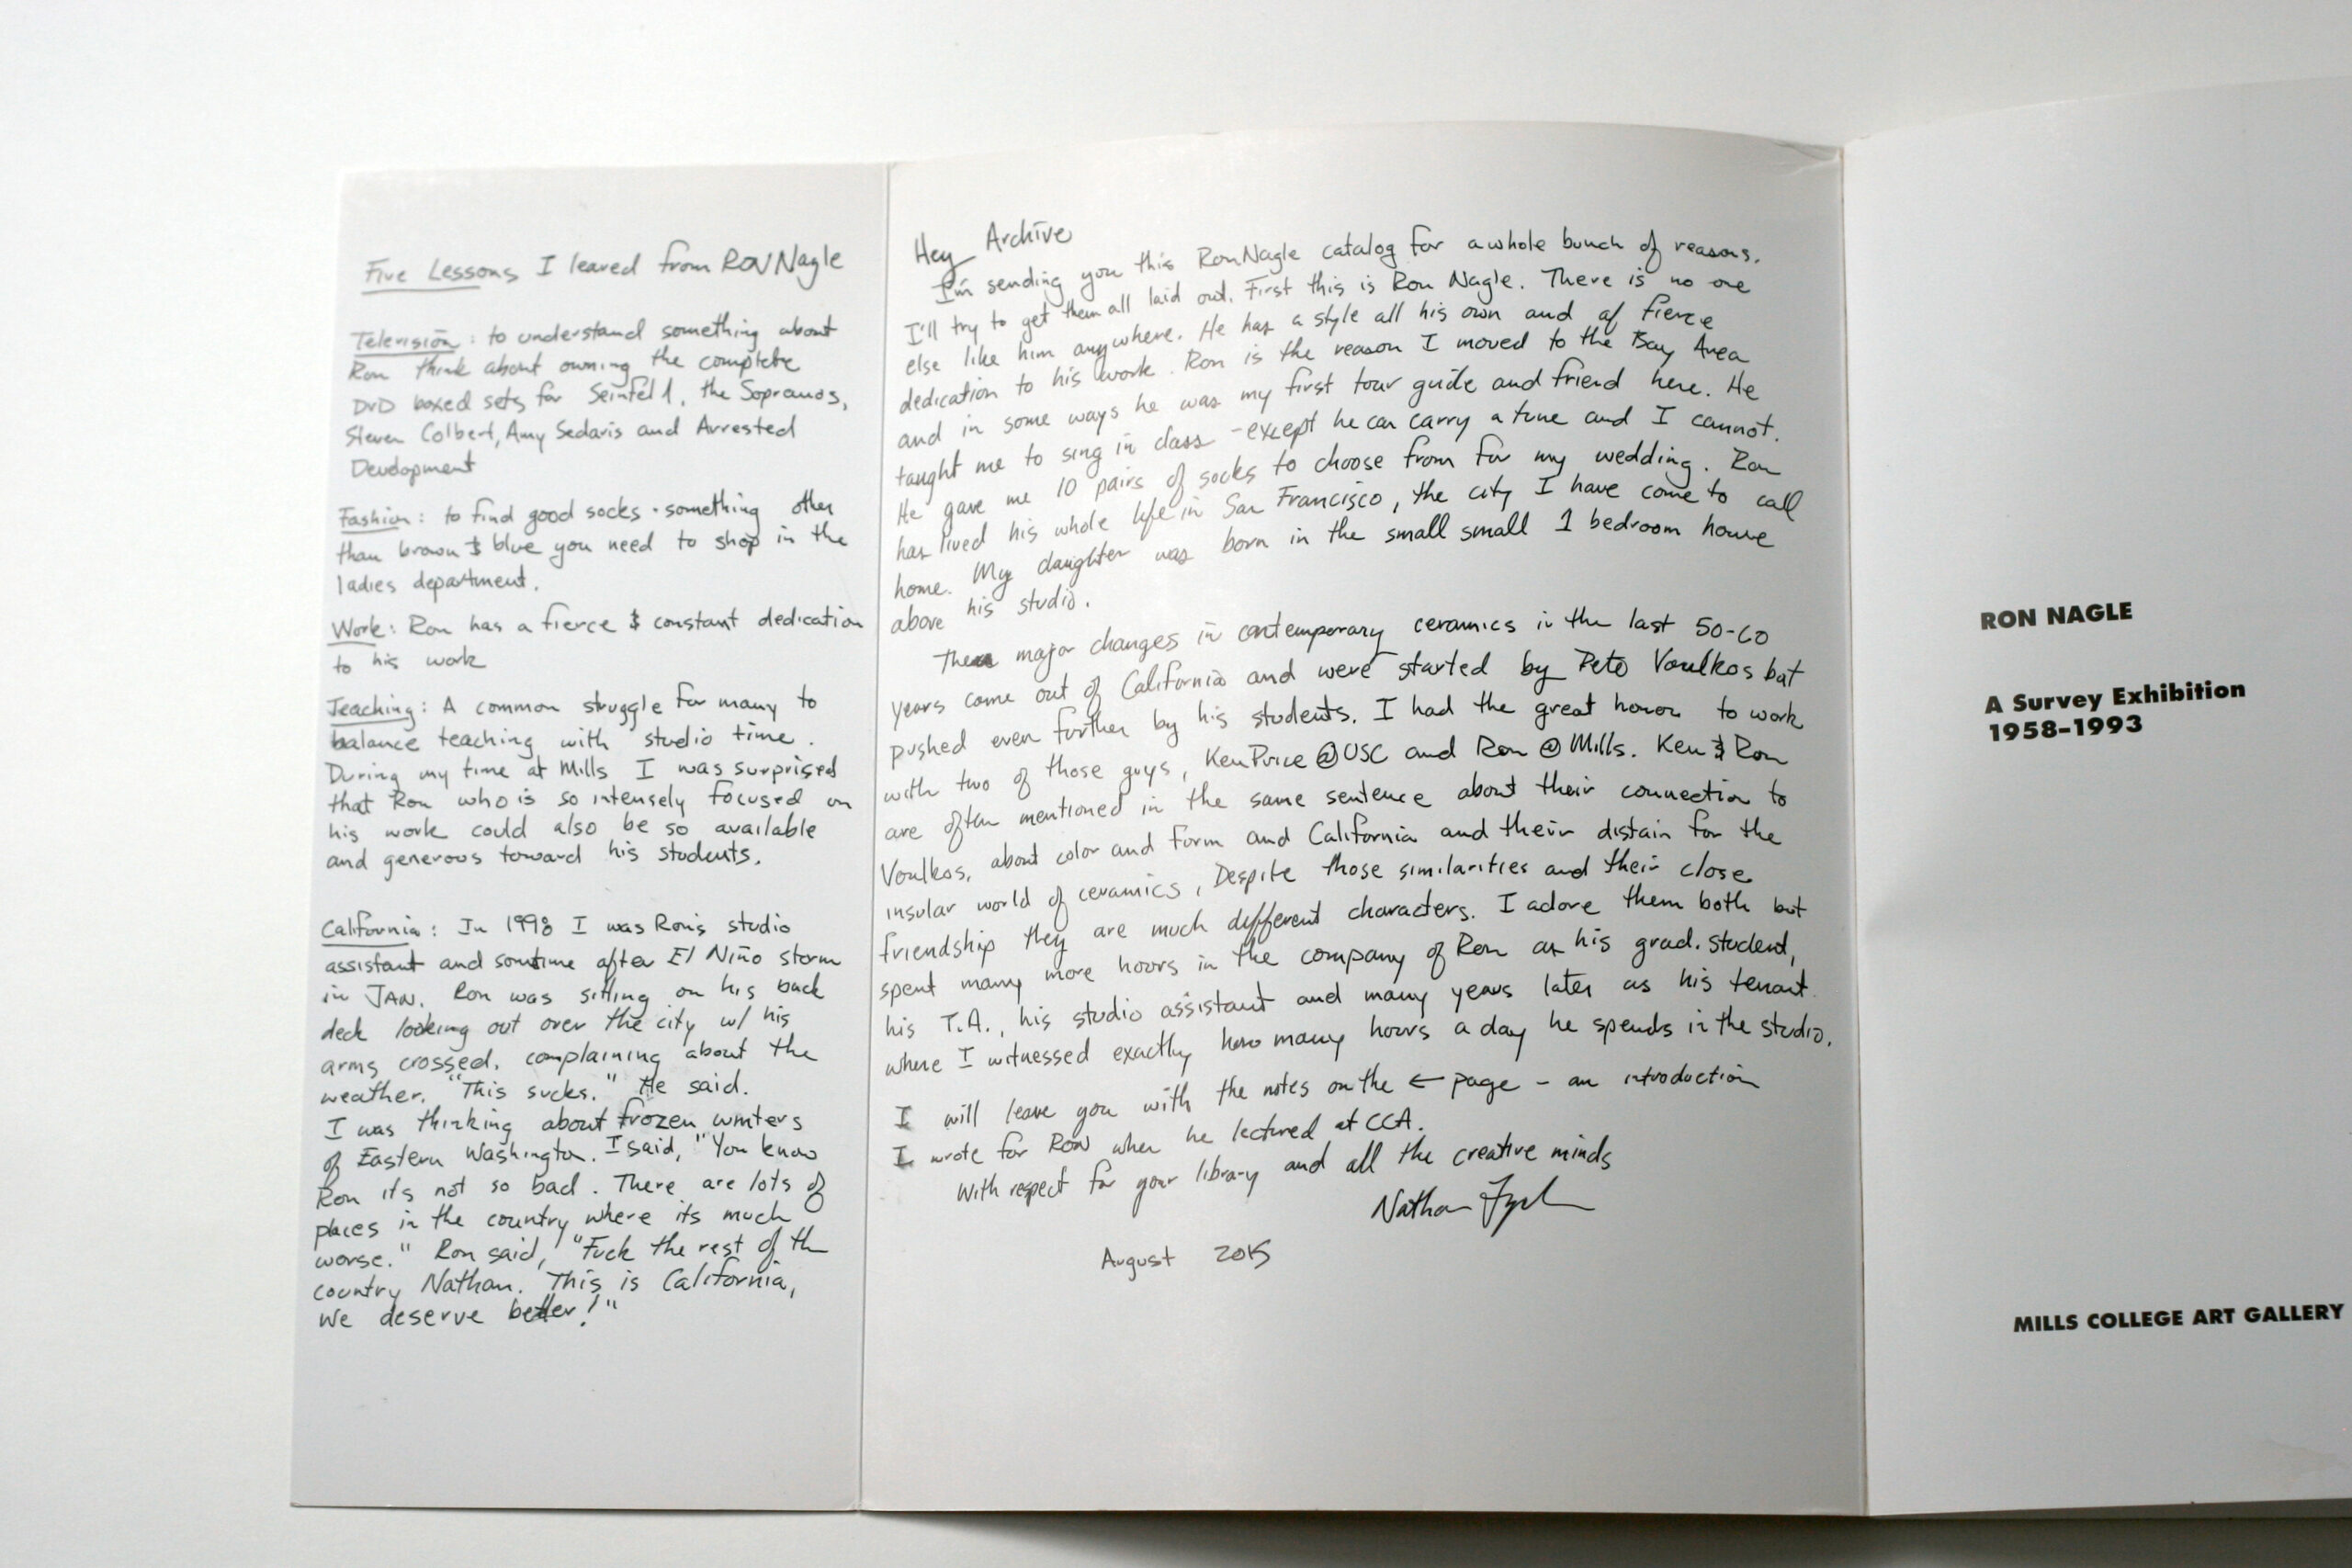 Five Lessons I leared from RON Nagle
Television: to understand something about
Ron think about owning the complete
DVD boxed sets for Seinfeld, the Sopranos,
Steven Colbert, Amy Sedaris and Arrested
Development
Fashion: to find good socks - something other
than brown & blue you need to shop in the
ladies department.
Work: Ron has a fierce & constant dedication
to his work
Teaching: A common struggle for many to
balance teaching with studio time.
During my time at Mills I was surprised
that Ron who is so intensely focused on
his work could also be so available
and generous toward his students.
California: In 1998 I was Ron's studio
assistant and sometime after El Niño storm
in JAN. Ron was sitting on his back
deck looking out over the city w/ his
arms crossed, complaining about the
weather. "This sucks." He said.
I was thinking about frozen winters
of Eastern Washington. I said, "You know
Ron its not so bad. There are lots of
places in the country where its much
worse." Ron said, "Fuck the rest of the
country Nathan. This is California,
We deserve better!"
Hey Archive
I'm sending you this Ron Nagle catalog for a whole bunch of reasons.
I'll try to get them all laid out. First this is Ron Nagle. There is no one
else like him anywhere. He has a style all his own and of fierce
dedication to his work. Ron is the reason I moved to the Bay Area
and in some ways he was my first tour guide and friend here. He
taught me to sing in class - except he can carry a tune and I cannot.
He gave me 10 pairs of socks to choose from for my wedding. Ron
has lived his whole life in San Francisco, the city I have come to call
home. My daughter was born in the small small 1 bedroom house
above his studio.
The major changes in contemporary ceramics in the last 50-60
years come out of California and were started by Pete Voulkos but
pushed even further by his students. I had the great honor to work
with two of those guys, Ken Price @ USC and Ron @ Mills. Ken & Ron
are often mentioned in the same sentence about their connection to
Voulkos, about color and form and California and their distain for the
insular world of ceramics. Despite those similarities and their close
friendship they are much different characters. I adore them both but
spent many more hours in the company of Ron as his grad. student,
his T.A., his studio assistant and many years later as his tenant
where I witnessed exactly how many hours a day he spends in the studio.
I will leave you with the notes on the ← page - an introduction
I wrote for Ron when he lectured at CCA.
With respect for your library and all the creative minds
Nathan
August 2015
RON NAGLE
A Survey Exhibition
1958–1993
MILLS COLLEGE ART GALLERY